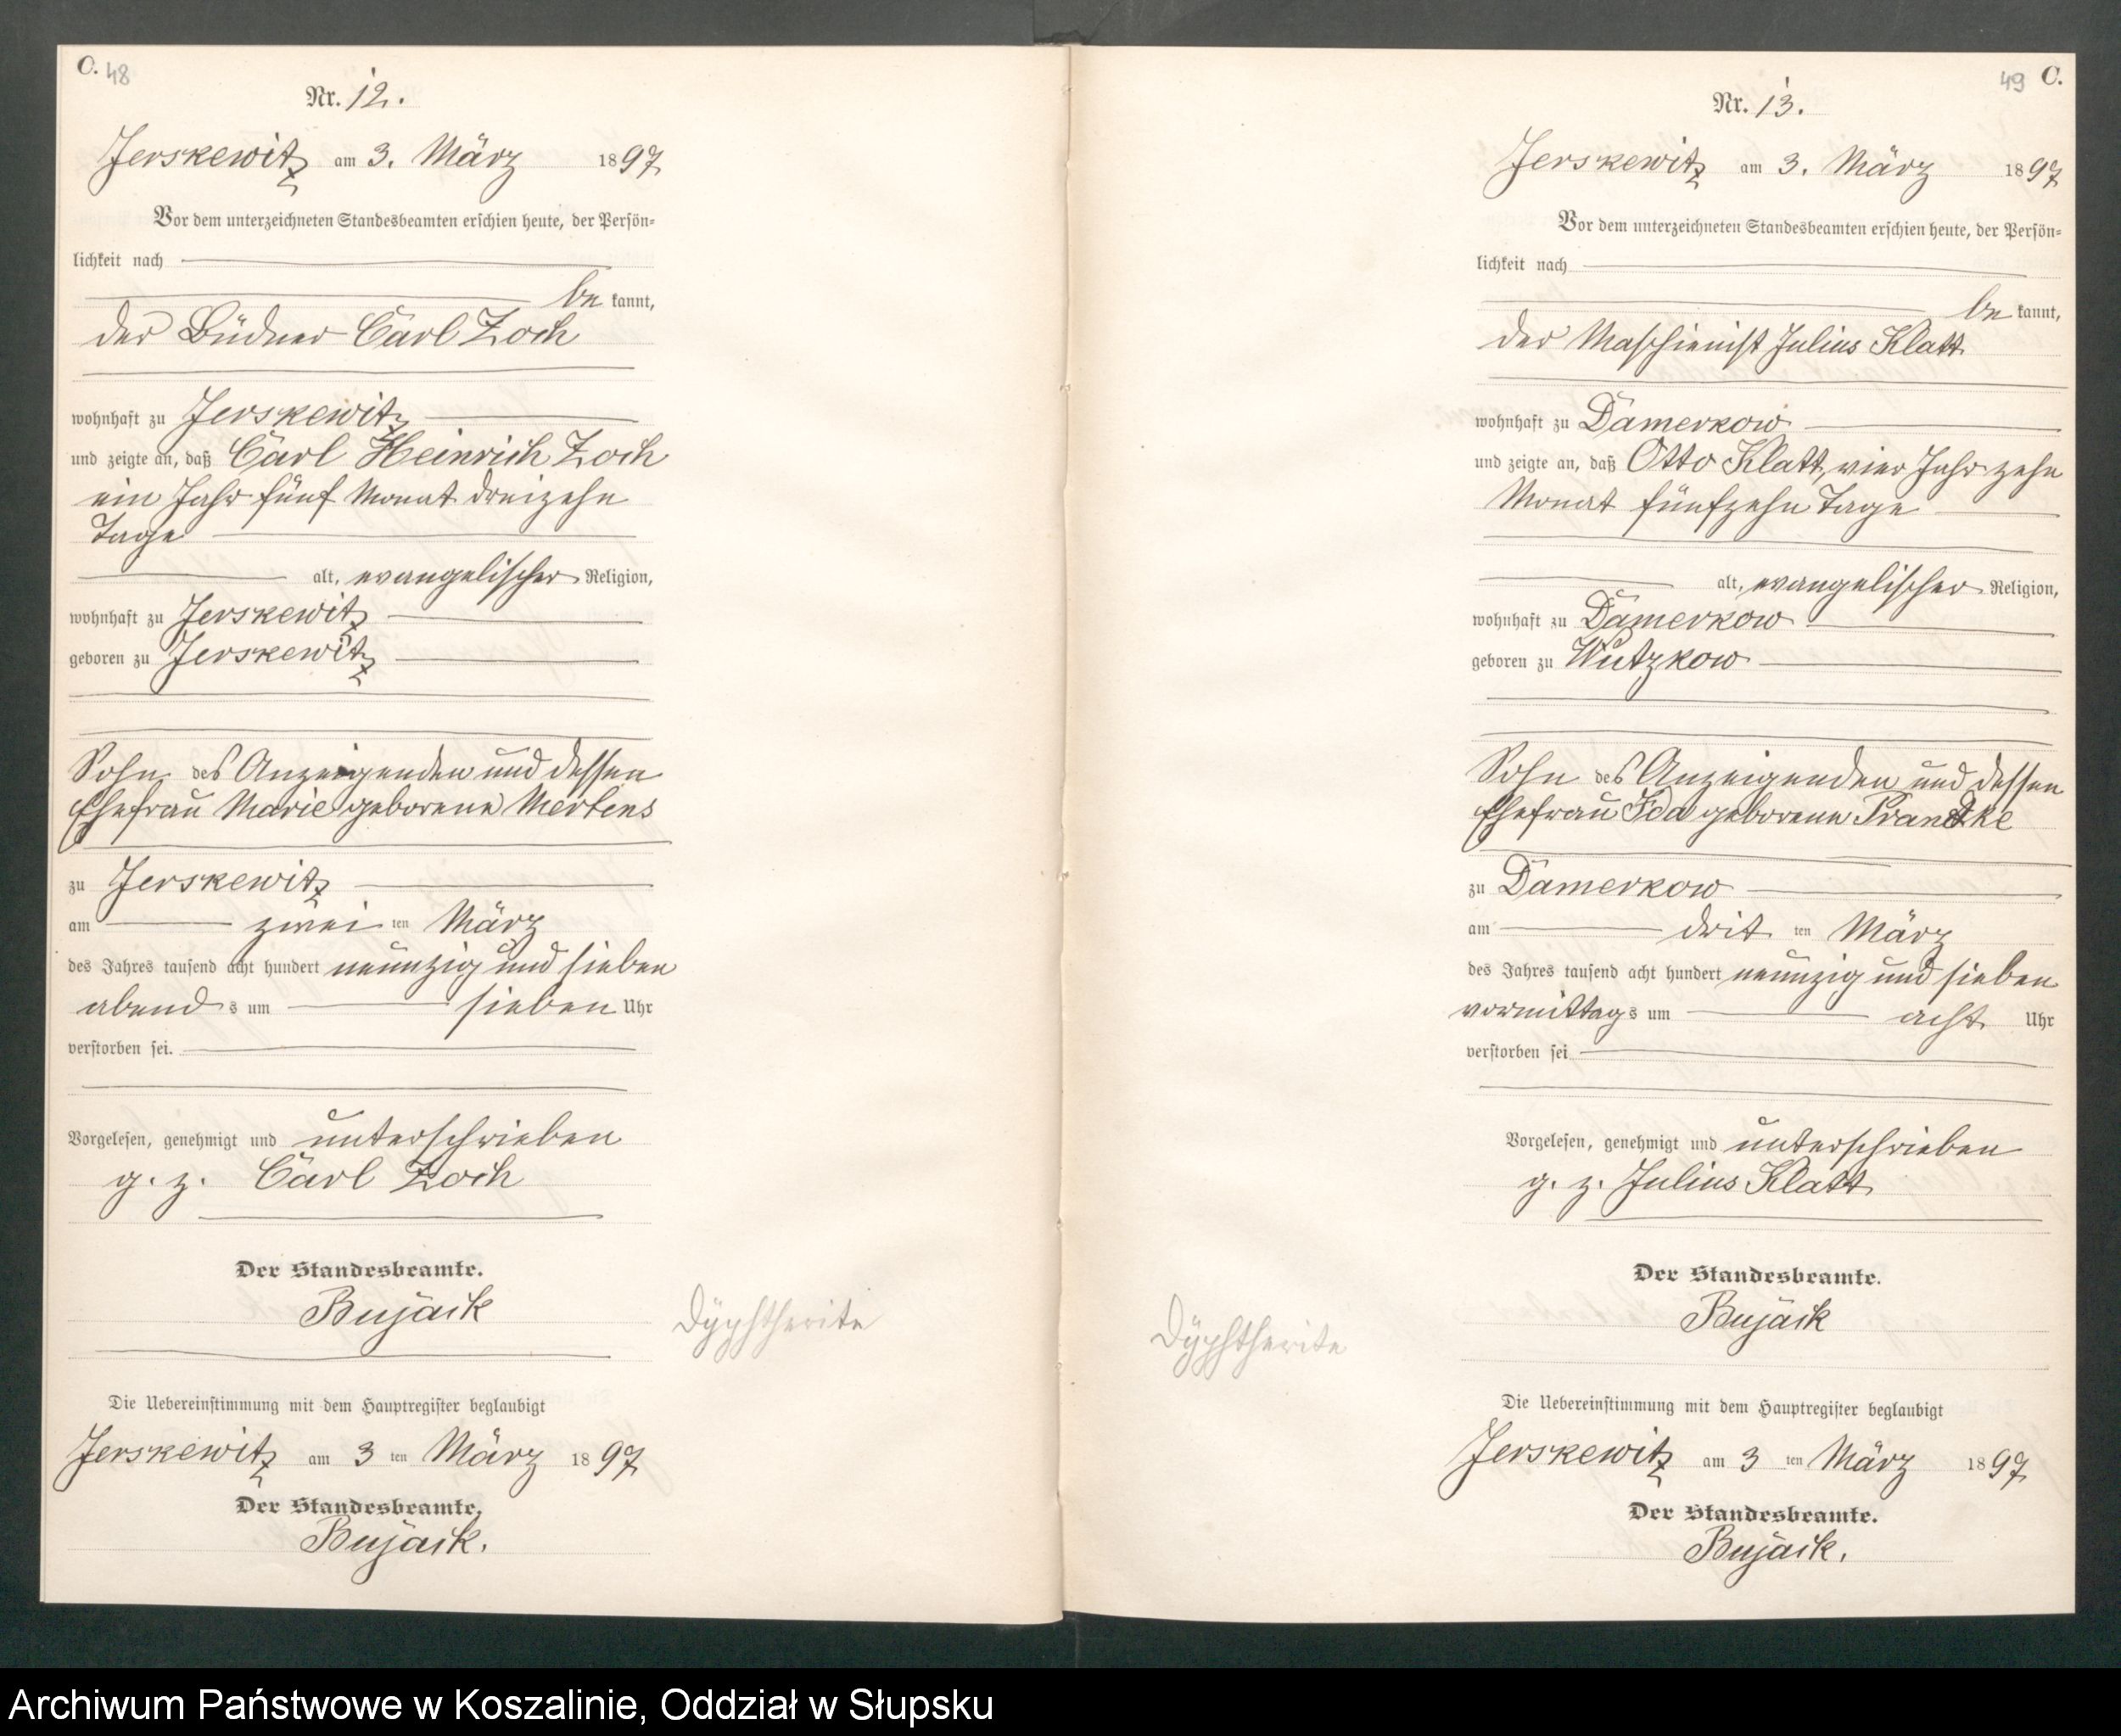 C. 48
Nr. 12.
Jerskewitz am 3. März 1897
Vor dem unterzeichneten Standesbeamten erschien heute, der Persön-
lichkeit nach
be kannt,
der Büdner Carl Zoch
wohnhaft zu Jerskewitz
und zeigte an, daß Carl Heinrich Zoch
ein Jahr fünf Monat dreizehn
Tage
alt, evangelischer Religion,
wohnhaft zu Jerskewitz
geboren zu Jerskewitz
Sohn des Anzeigenden und dessen
Ehefrau Marie geborene Mertens
zu Jerskewitz
am zwei ten März
des Jahres tausend acht hundert neunzig und sieben
abend s um sieben Uhr
verstorben sei.
Vorgelesen, genehmigt und unterschrieben
g. z. Carl Zoch
Der Standesbeamte.
Bujack
Dyphtherite
Die Uebereinstimmung mit dem Hauptregister beglaubigt
Jerskewitz am 3 ten März 1897
Der Standesbeamte.
Bujack.
49 C.
Nr. 13.
Jerskewitz am 3. März 1897
Vor dem unterzeichneten Standesbeamten erschien heute, der Persön-
lichkeit nach
be kannt,
der Maschienist Julius Klatt
wohnhaft zu Damerkow
und zeigte an, daß Otto Klatt, vier Jahr zehn
Monat fünfzehn Tage
alt, evangelischer Religion,
wohnhaft zu Damerkow
geboren zu Wutzkow
Sohn des Anzeigenden und dessen
Ehefrau Ida geborene
zu Damerkow
am drit ten März
des Jahres tausend acht hundert neunzig und sieben
vormittag s um acht Uhr
verstorben sei
Vorgelesen, genehmigt und unterschrieben
g. z. Julius Klatt
Der Standesbeamte.
Bujack
Dyphtherite
Die Uebereinstimmung mit dem Hauptregister beglaubigt
Jerskewitz am 3 ten März 1897
Der Standesbeamte.
Bujack.
Archiwum Państwowe w Koszalinie, Oddział w Słupsku